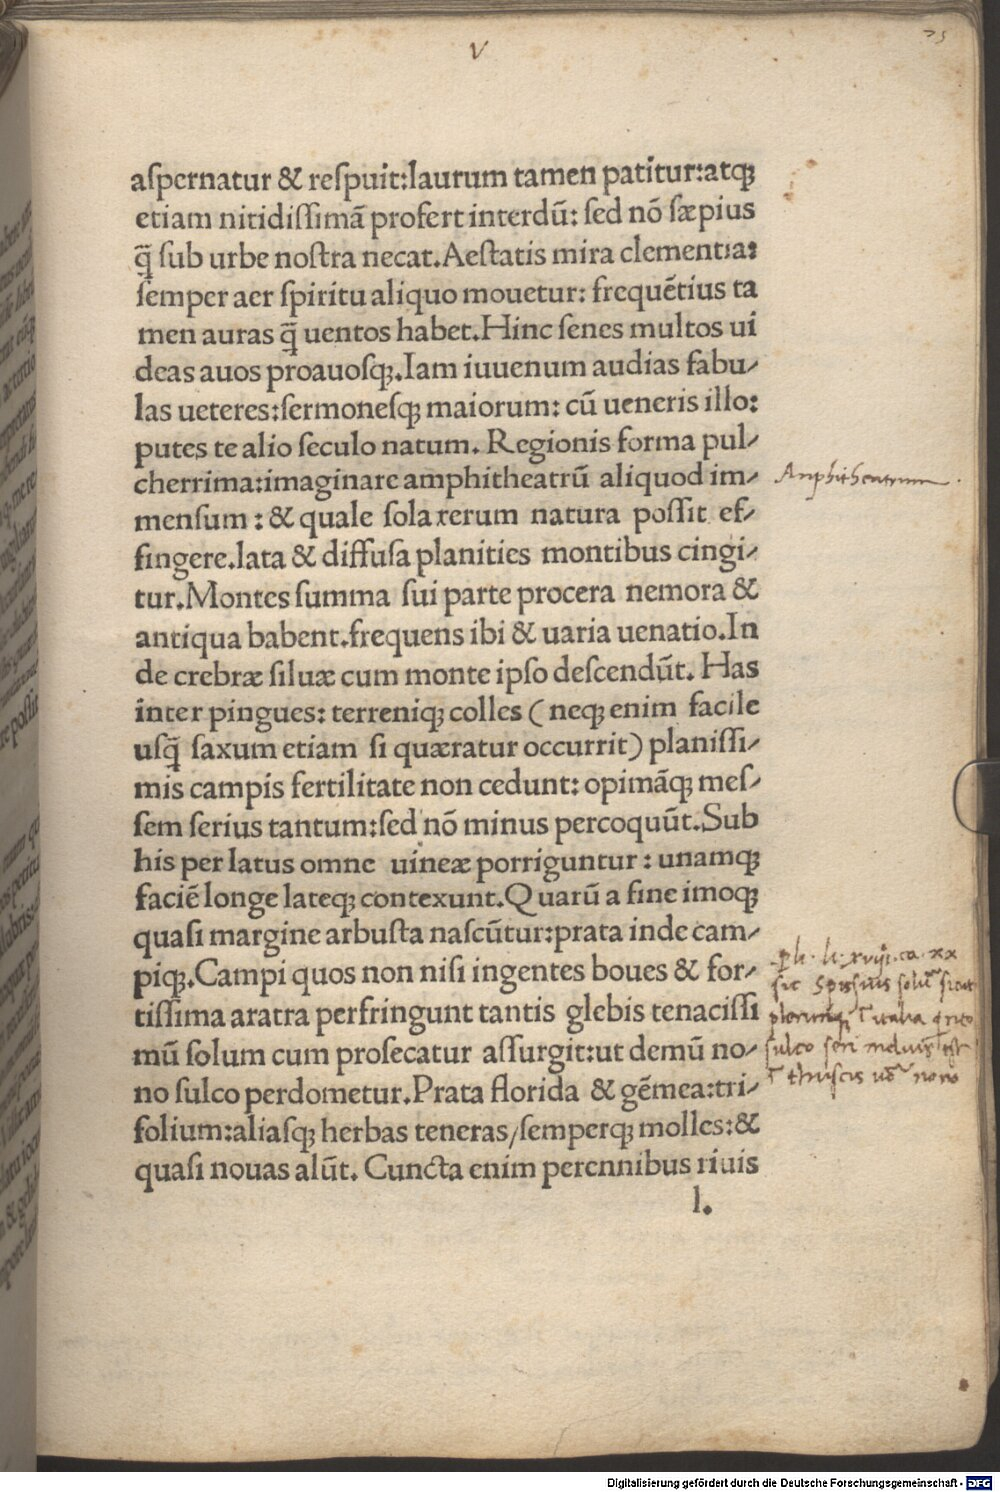 V
aſpernatur & reſpuit:laurum tamen patitur:atq;
etiam nitidiſſimã profert interdũ: ſed nõ ſæpius
q̃ ſub urbe noſtra necat.Aeſtatis mira clementia:
ſemper aer ſpiritu aliquo mouetur: frequẽtius ta
men auras q̃ uentos habet.Hinc ſenes multos ui
deas auos proauoſq;.Iam iuuenum audias fabu⸗
las ueteres:ſermoneſq; maiorum: cũ ueneris illo:
putes te alio ſeculo natum. Regionis forma pul⸗
cherrima:imaginare amphitheatrũ aliquod im⸗
Amphitheatrum.
menſum : & quale ſola rerum natura poſſit ef⸗
fingere.lata & diffuſa planities montibus cingi⸗
tur.Montes ſumma ſui parte procera nemora &
antiqua babent.frequens ibi & uaria uenatio.In
de crebræ ſiluæ cum monte ipſo deſcendũt. Has
inter pingues: terreniq; colles ( neq; enim facile
uſq̃ ſaxum etiam ſi quæratur occurrit) planiſſi⸗
mis campis fertilitate non cedunt: opimãq; meſ⸗
ſem ſerius tantum:ſed nõ minus percoquũt.Sub
his per latus omne uineæ porriguntur : unamq;
faciẽ longe lateq; contexunt.Quarũ a fine imoq;
quaſi margine arbuſta naſcũtur:prata inde cam⸗
piq;.Campi quos non niſi ingentes boues & for⸗
tiſſima aratra perfringunt tantis glebis tenaciſſi
mũ ſolum cum proſecatur aſſurgit:ut demũ no⸗
no ſulco perdometur.Prata florida & gẽmea:tri⸗
folium:aliaſq; herbas teneras/ſemperq; molles:&
quaſi nouas alũt. Cuncta enim perennibus riuis
l.
li. xviij. ca. xx
sic Spissius solũ sicut
italia
sulco seri melius est
ĩ thuscis nono
Digitalisierung gefördert durch die Deutsche Forschungsgemeinschaft - DFG